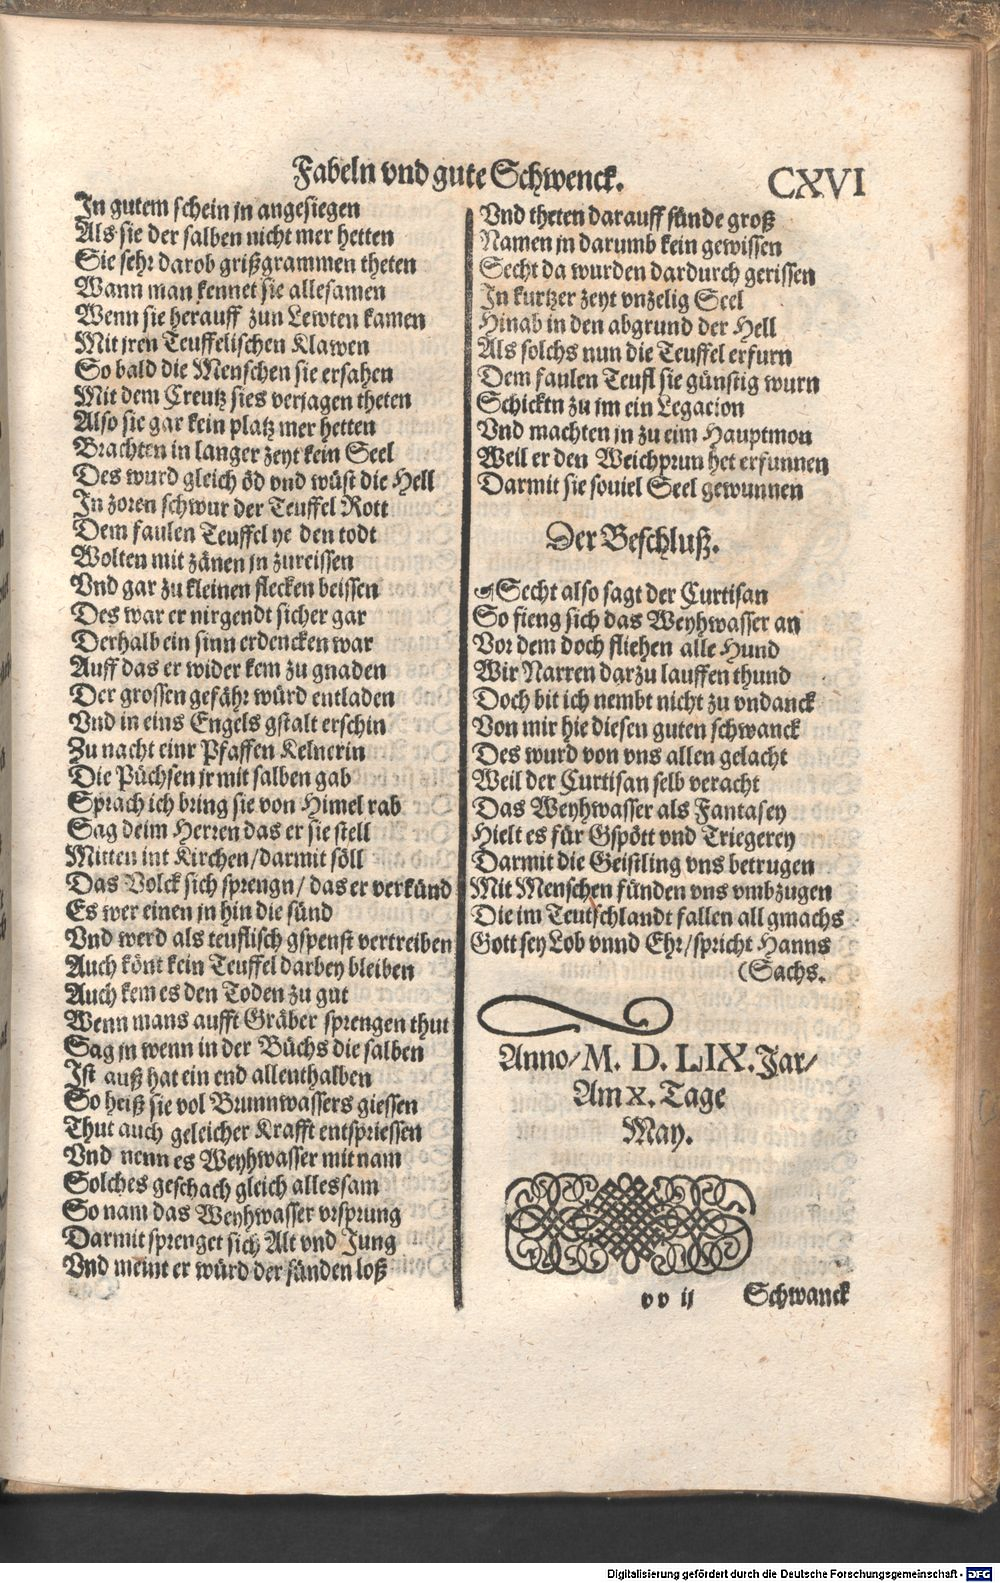 Fabeln vnd gute Schwenck.
CXVI
In gutem schein jn angesiegen
Als sie der salben nicht mer hetten
Sie sehr darob grißgrammen theten
Wann man kennet sie allesamen
Wenn sie herauff zun Lewten kamen
Mit jren Teuffelischen Klawen
So bald die Menschen sie ersahen
Mit dem Creutz sies verjagen theten
Also sie gar kein platz mer hetten
Brachten in langer zeyt kein Seel
Des wurd gleich öd vnd wüst die Hell
In zoren schwur der Teuffel Rott
Dem faulen Teuffel ye den todt
Wolten mit zänen jn zureissen
Vnd gar zu kleinen flecken beissen
Des war er nirgendt sicher gar
Derhalb ein sinn erdencken war
Auff das er wider kem zu gnaden
Der grossen gefähr würd entladen
Vnd in eins Engels gstalt erschin
Zu nacht einr Pfaffen Kelnerin
Die Püchsen jr mit salben gab
Sprach ich bring sie von Himel rab
Sag deim Herren das er sie stell
Mitten int Kirchen/darmit söll
Das Volck sich sprengn/ das er verkünd
Es wer einen jn hin die sünd
Vnd werd als teuflisch gspenst vertreiben
Auch könt kein Teuffel darbey bleiben
Auch kem es den Toden zu gut
Wenn mans aufft Gräber sprengen thut
Sag jn wenn in der Büchs die salben
Ist auß hat ein end allenthalben
So heiß sie vol Brunnwassers giessen
Thut auch geleicher Krafft entspriessen
Vnd nenn es Weyhwasser mit nam
Solches geschach gleich allessam
So nam das Weyhwasser vrsprung
Darmit sprenget sich Alt vnd Jung
Vnd meint er würd der sünden loß
Vnd theten darauff sünde groß
Namen jn darumb kein gewissen
Secht da wurden dardurch gerissen
In kurtzer zeyt vnzelig Seel
Hinab in den abgrund der Hell
Als solchs nun die Teuffel erfurn
Dem faulen Teufl sie günstig wurn
Schicktn zu jm ein Legacion
Vnd machten jn zu eim Hauptmon
Weil er den Weichprun het erfunnen
Darmit sie souiel Seel gewunnen
Der Beschluß.
Secht also sagt der Curtisan
So fieng sich das Weyhwasser an
Vor dem doch fliehen alle Hund
Wir Narren darzu lauffen thund
Doch bit ich nembt nicht zu vndanck
Von mir hie diesen guten schwanck
Des wurd von vns allen gelacht
Weil der Curtisan selb veracht
Das Weyhwasser als Fantasey
Hielt es für Gspött vnd Triegerey
Darmit die Geistling vns betrugen
Mit Menschen fünden vns vmbzugen
Die im Teutschlandt fallen all gmachs
Gott sey Lob vnnd Ehr/spricht Hanns
(Sachs.
Anno/M. D. LIX. Jar/
Am X. Tage
May.
vv ij
Schwanck
Digitalisierung gefördert durch die Deutsche Forschungsgemeinschaft - DFG